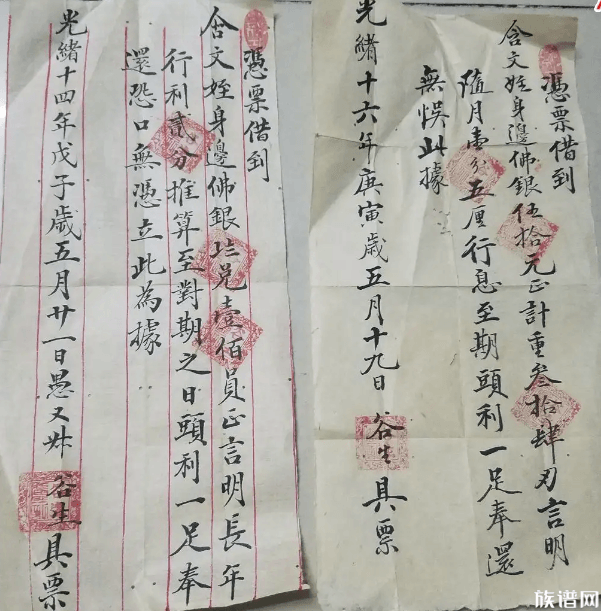 憑票借到
含文姪身邊佛銀伍拾元正計重叁拾肆刃言明
隨月壹分五厘行息至期頭利一足奉還
無悮此據
光緒十六年庚寅歲五月十九日 谷生 具票
憑票借到
含文姪身邊佛銀 兑壹佰員正言明長年
行利貳分推算至對期之日頭利一足奉
還恐口無憑立此為據
光緒十四年戊子歲五月廿一日愚叉 谷生 具票
族谱网